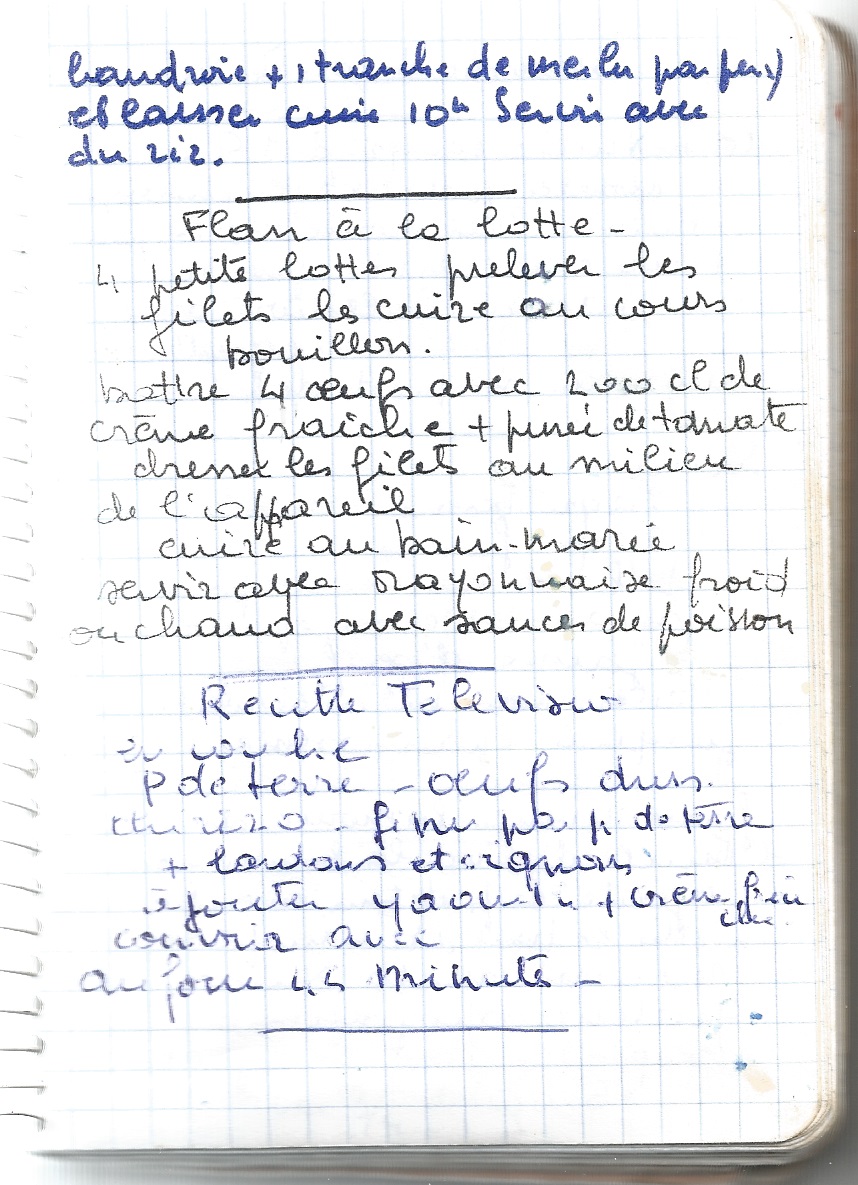 baudroie + 1 tranche de merlu par pers)
et laisser cuire 10m Servir avec
du riz.
Flan à la lotte -
4 petite lottes prelever les
filets les cuire au cours
bouillon.
battre 4 œufs avec 200 cl de
crème fraiche + purée de tomate
dresser les filets au milieu
de l'appareil
cuire au bain-marie
servir avec mayonnaise froid
ou chaud avec sauces de poisson
Recette Television
en couche
P de terre - œufs durs.
chorizo - finir par p. de terre
+ lardons et oignons
ajouter yaourt + crème fraiche
couvrir avec
au four 45 minutes -